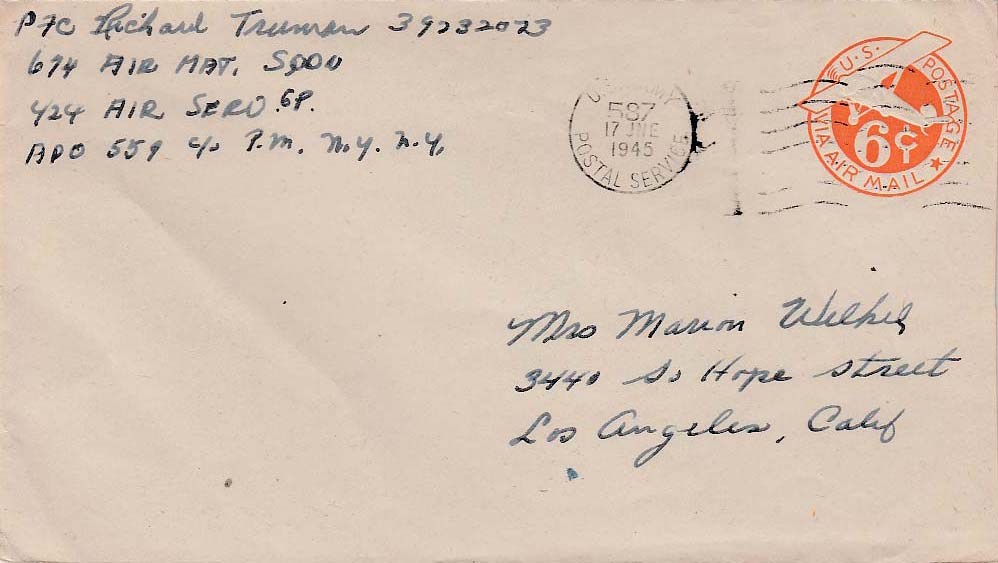 Pfc Richard Truman 39232023
694 AIR MAT. SQDN
424 AIR SERV. GP.
APO 559 c/o P.M. N.Y. N.Y.
U.S. ARMY
587
17 JNE
1945
POSTAL SERVICE
U.S. POSTAGE
6¢
VIA AIR MAIL
Mrs Marion
3440 So Hope Street
Los Angeles, Calif